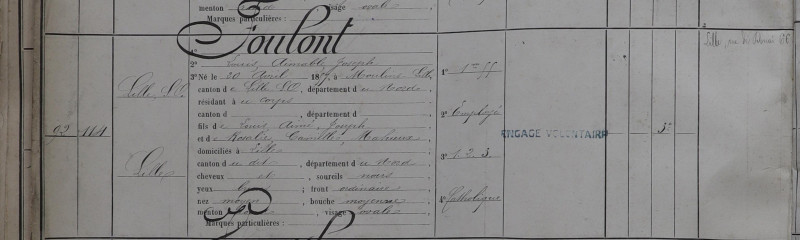 menton visage ovale
Marques particulières :
Toulont
1°
2° Louis, Aimable, Joseph
3° Né le 20 Avril 187, à Moulins Lille
canton de Lille S.O, département du Nord
résidant à au corps
canton d , département d
fils de Louis, Aimé, Joseph
et de Rosalie, Camille,
domiciliés à Lille
canton du dit, département du Nord
cheveux et, sourcils noirs
yeux ; front ordinaire
nez moyen, bouche moyenne
menton , visage ovale
Marques particulières :
92 114
Lille, S.O.
Lille
1°
2° Employé
3° 1.2.3.
4° Catholique
ENGAGE VOLONTAIRE
5e
Lille, rue de